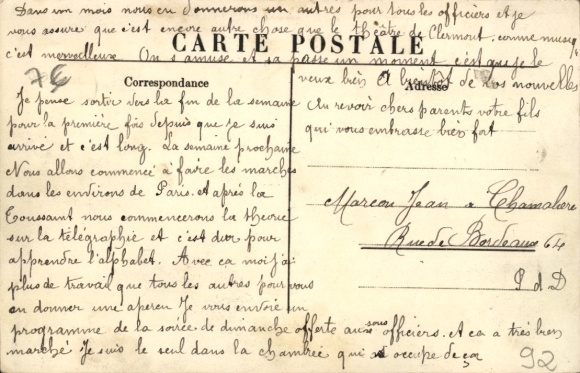 Dans un mois nous en donnerons un autres pour tous les officiers et je
vous assure que c'est encore autre chose que le théâtre de Clermont. comme musique
CARTE POSTALE
c'est merveilleux On s'amuse et sa passe un moment c'est que je le
76
Correspondance
Adresse
veux bien A bientôt de vos nouvelles
Je pense sortir vers la fin de la semaine
Au revoir chers parents votre fils
pour la première fois depuis que je suis
qui vous embrasse bien fort
arrivé et c'est long. La semaine prochaine
Nous allons commencé à faire les marches
dans les environs de Paris. et après la
Toussaint nous commencerons la théorie
sur la télégraphie et c'est dur pour
apprendre l'alphabet. Avec ca moi j'ai
plus de travail que tous les autres pour vous
en donner une apercu Je vous envoie un
Marcou Jean a Chamaliere
Rue de Bordeaux 64
P d D
programme de la soirée de dimanche offerte aux sous officiers. et ca a très bien
marché Je suis le seul dans la chambrée qui occupe de ça
92